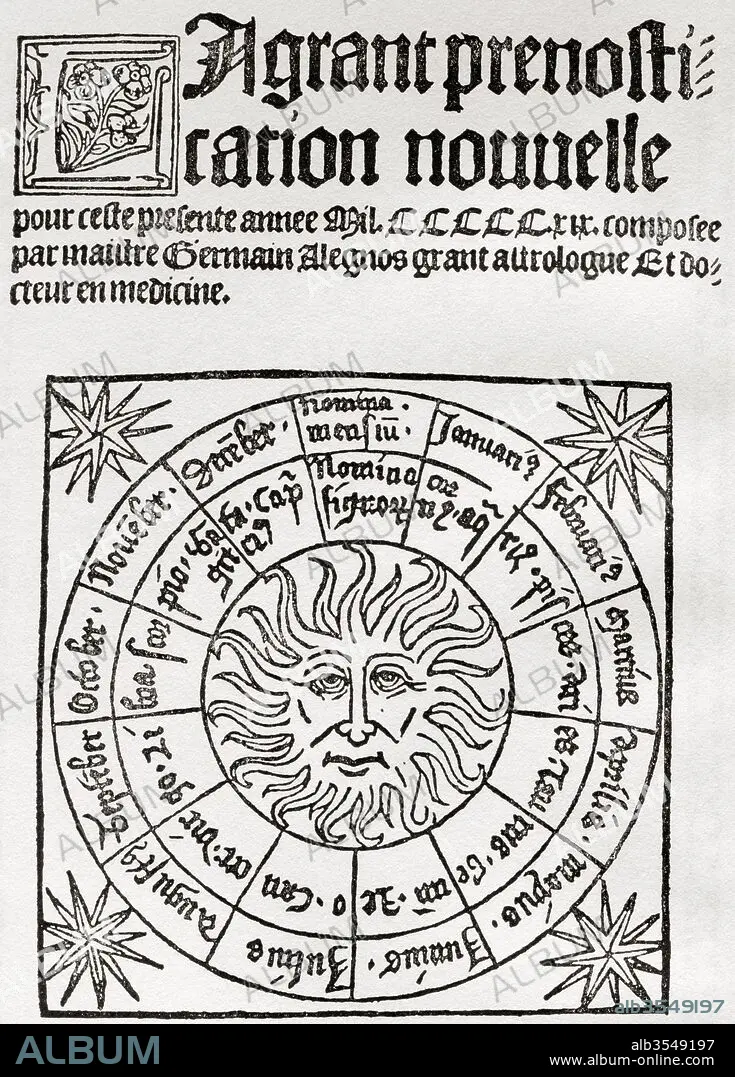 LA grant prenosti⸗
cation nouuelle
pour ceste presente annee Mil. CCCCC.xix. composee
par maistre Germain Alegnos grant astrologue Et do⸗
cteur en medicine.
Nomina
mensiū.
Januari⁹
Februari⁹
Martius
Aprilis.
Junius.
Julius
August⁹
September
October.
Nouēber.
Decēber.
Nomina
ALBUM
alb3549197
ALBUM
alb3549197
www.album-online.com